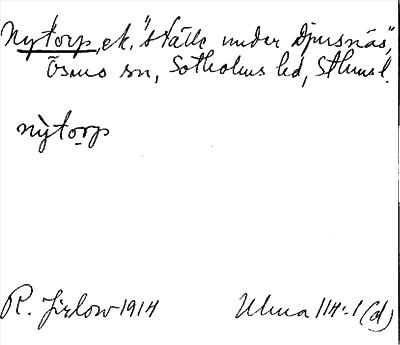 Nytorp, ek. "ställe under Djursnäs",
Ösmo sn, Sotholms hd, Sthms l.
nỳtorp
R. Jirlow 1914 Ulma 114:1 (d)